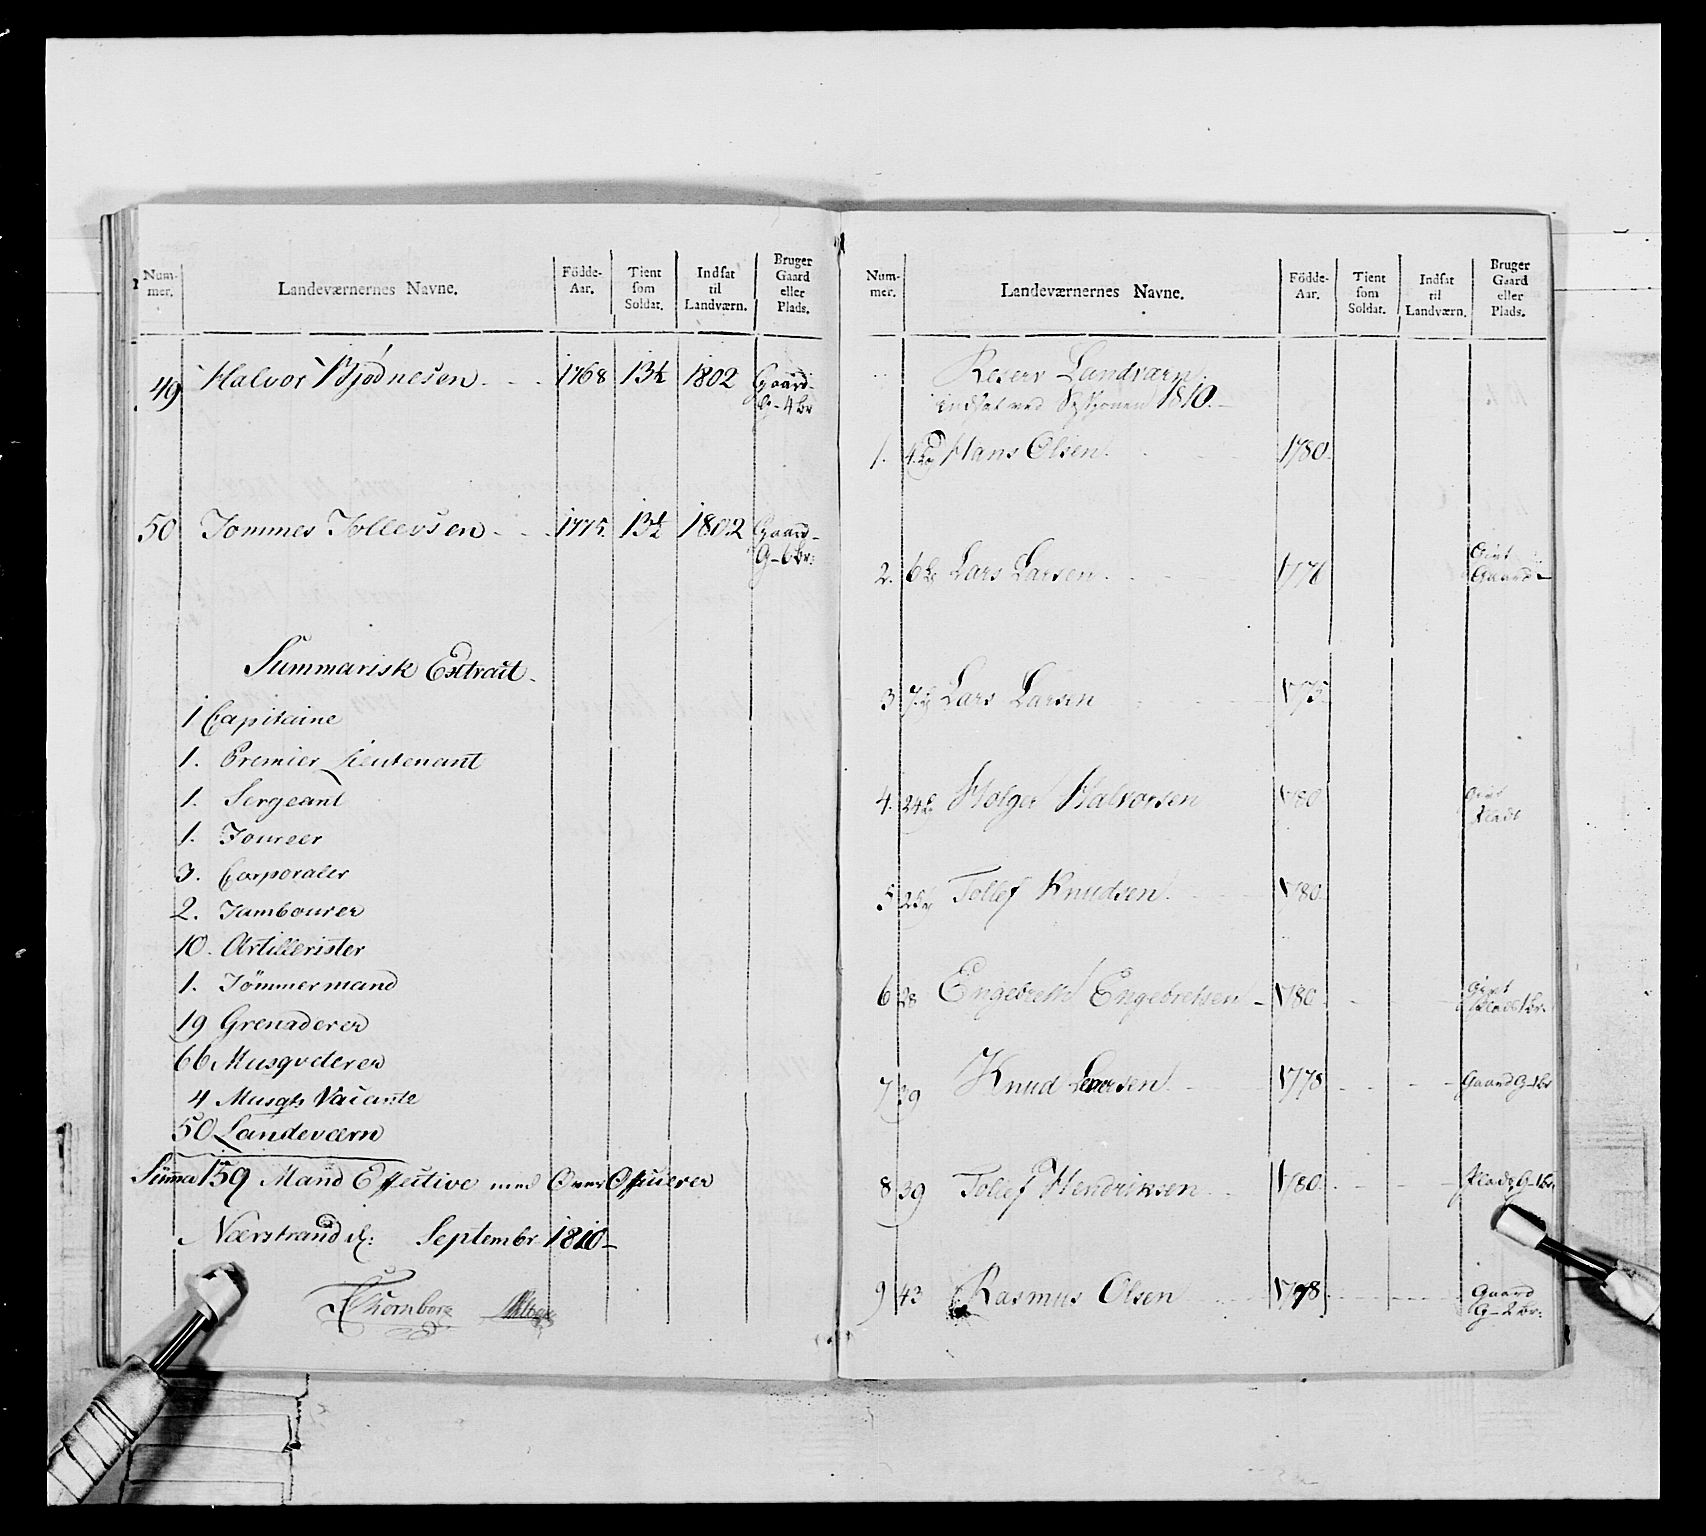 Num-mer. Landeværnernes Navne. Födde-Aar. Tient som Soldat. Indsat til Landværn. Bruger Gaard eller Plads.
49 Halvor Bjødnesen 1768 13½ 1802 Gaard
G-4 br
50 Tommes Tollevsen 1775 13½ 1802 Gaard-
G-6 br:
Summarisk Extract
1 Capitaine
1. Premier Lieutenant
1. Sergeant
1. Foureer
3. Corporaler
2. Tambourer
10. Artillerister
1. Tömmermand
19 Grenaderer
66 Musqveterer
4 Musqts Vacante
50 Landeværn
Summa 159 Mand Effective med Over Officerer
Nærstrand d: Septembr 1810
Num-mer. Landeværnernes Navne. Födde-Aar. Tient som Soldat. Indsat til Landværn. Bruger Gaard eller Plads.
Reserv Landværn
indsat ved Sessionen 1810.
1. Hans Olsen 1780
2. Lars Larsen 1776 Givt
Gaard
3 Lars Larsen 1775
4. 24 Holger Halvorsen 1780 Givt
Plads
5 Tollef Knudsen 1780
6 28 Engebreth Engebrethsen 1780 Givt
Plads 1 br.
7 39 Knud Larsen 1778 Gaard G-1 br
8 39 Tollef Hendriksen 1780 Plads G-1 br
9 42 Rasmus Olsen 1778 Gaard
G-2 br: